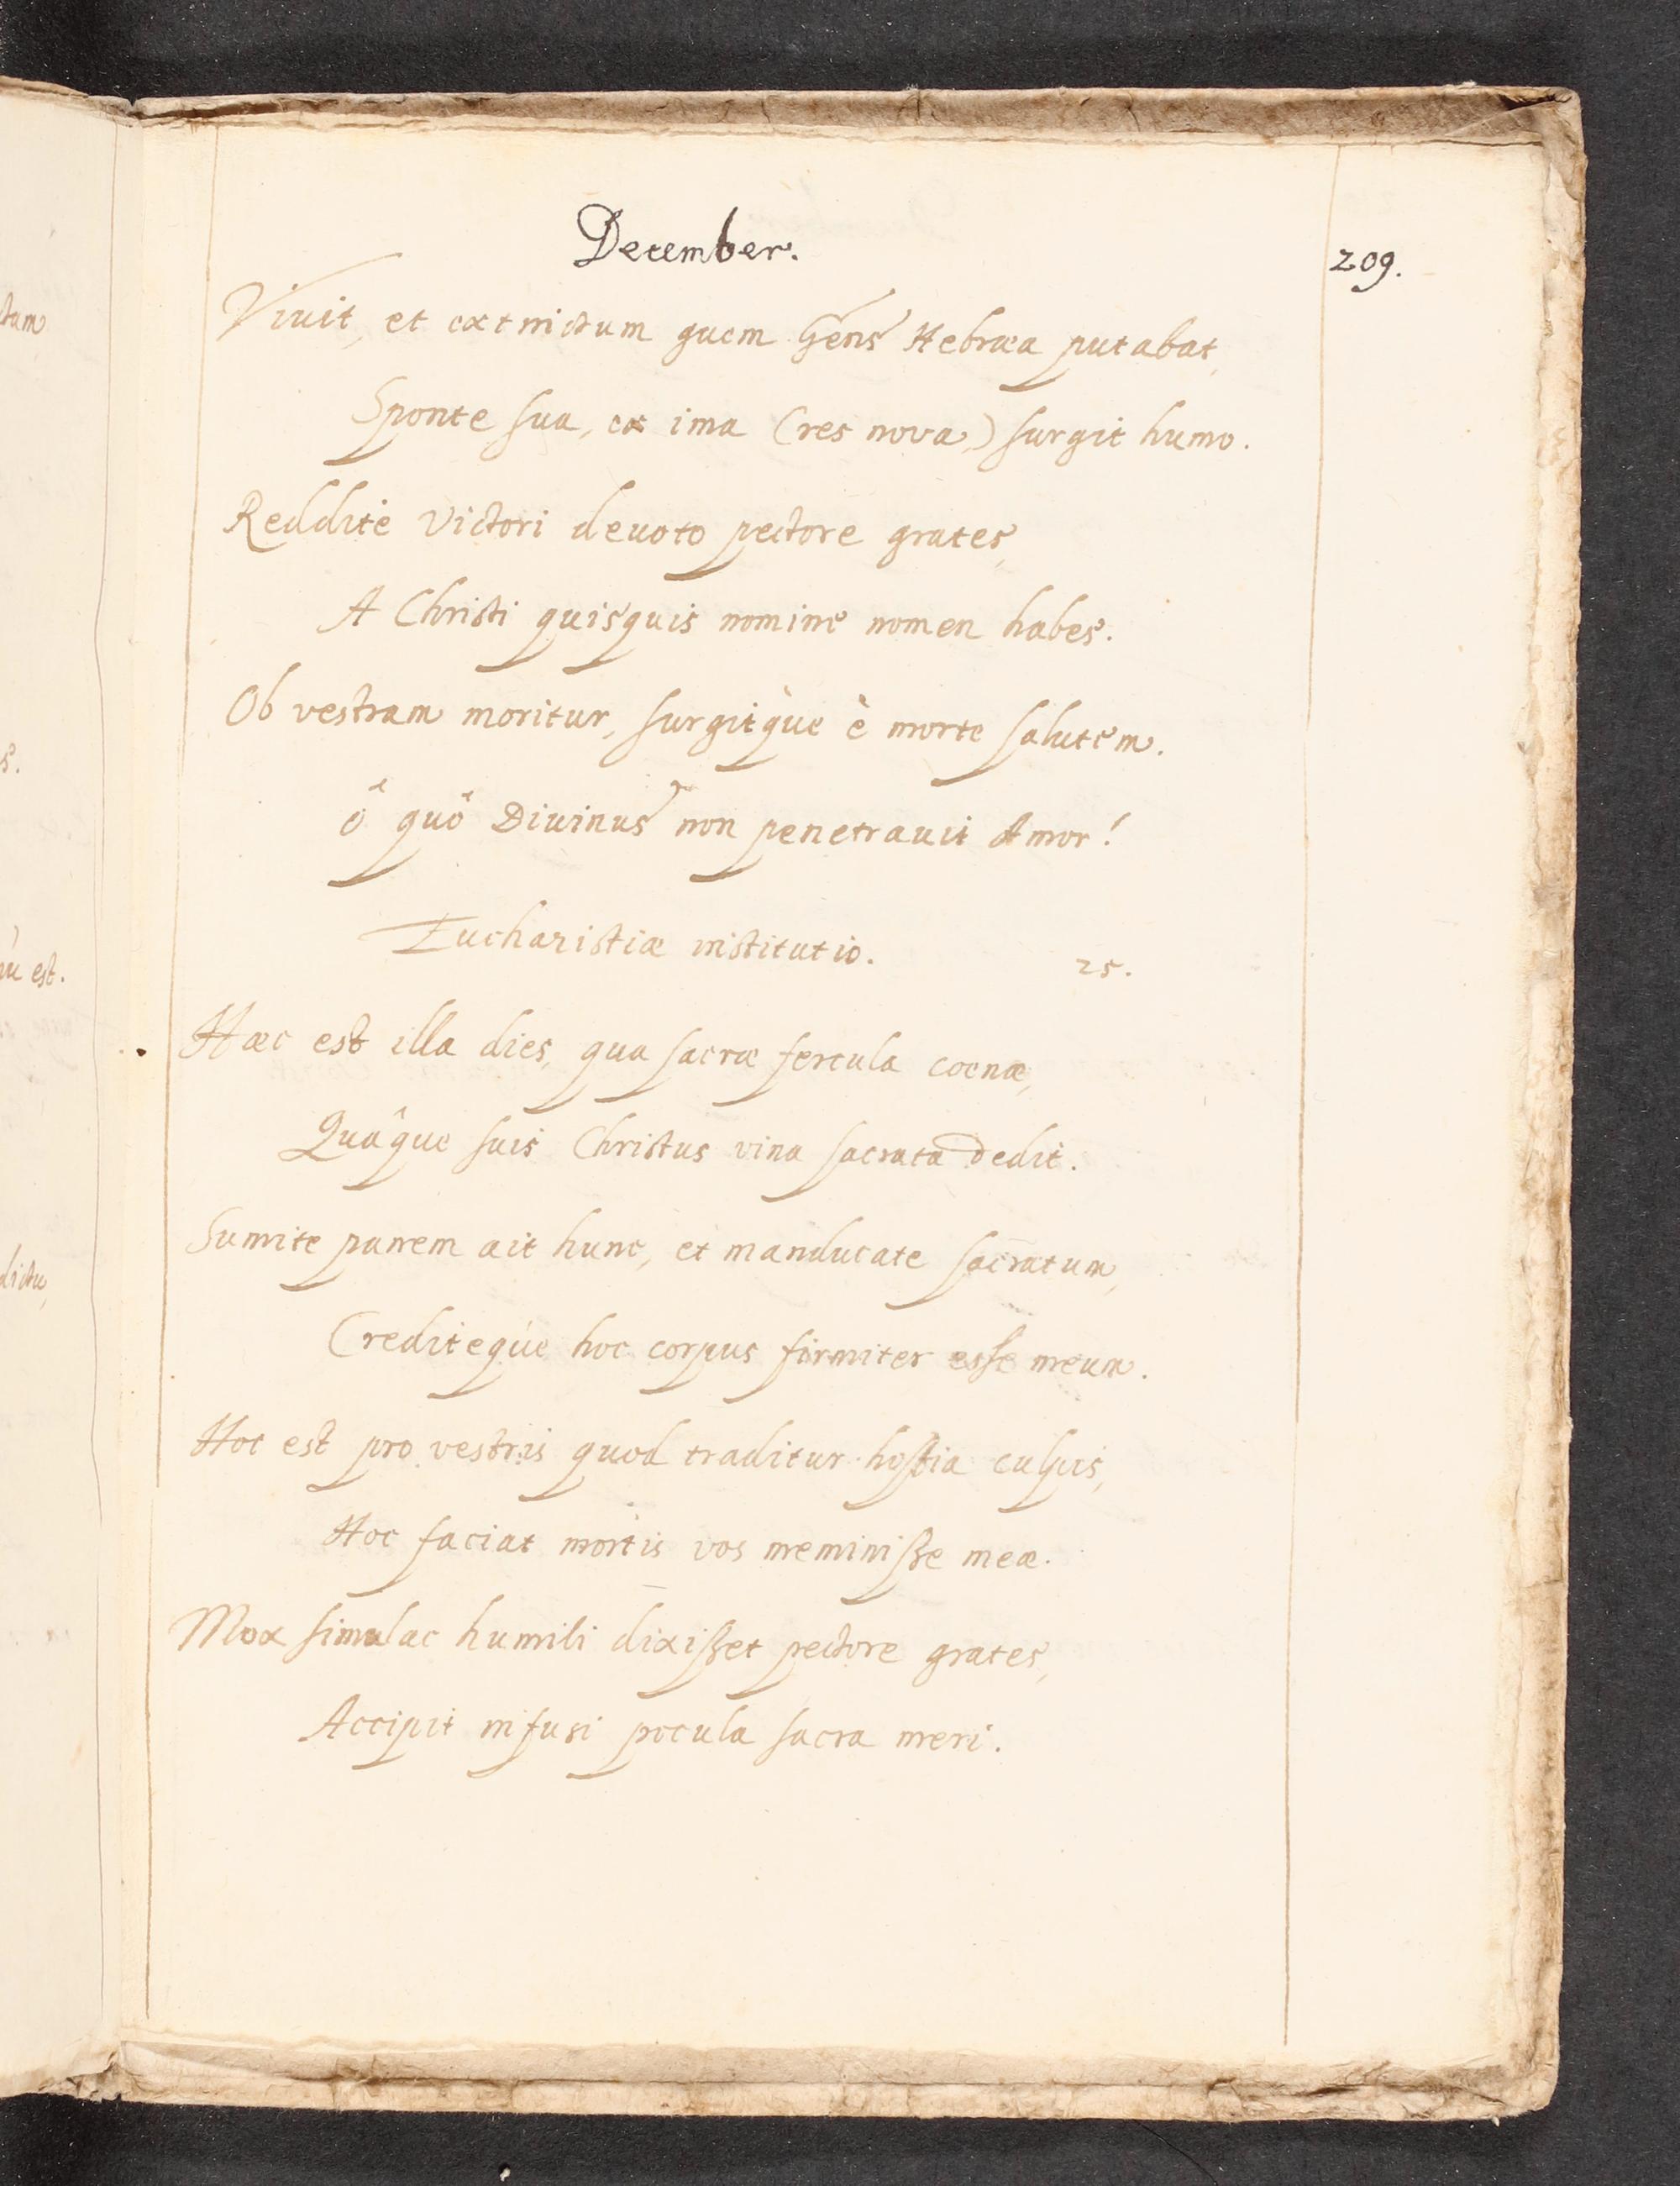 December.
209.
Viuit, et extinctum quem Gens Hebræa putabat,
Sponte sua, ex ima (res nova,) surgit humo.
Reddite victori deuoto pectore grates,
A Christi quisquis nomine nomen habes.
Ob vestram moritur, surgitq̀ue è morte salutem.
ô quô Diuinus non penetrauit Amor!
Eucharistiæ institutio. 25.
Hæc est illa dies, qua sacræ fercula coenæ,
Quâque suis Christus vina sacrata dedit.
Sumite panem ait hunc, et manducate sacratum,
Creditequè hoc corpus firmiter esse meum.
Hoc est pro vestris quod traditur hostia culpis,
Hoc faciat mortis vos meminisse meæ.
Mox simulac humili dixisset pectore grates,
Accipit infusi pocula sacra meri.
tum
s.
est.
dictu,